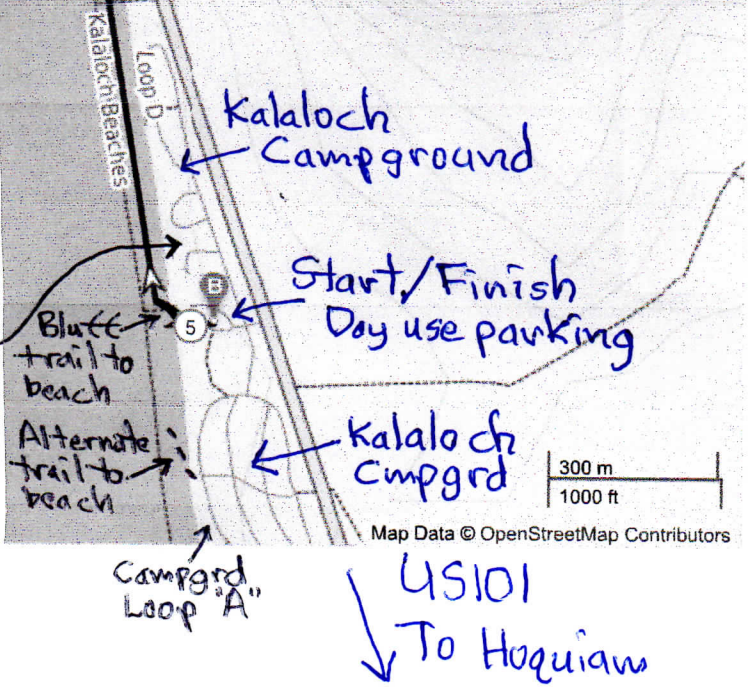 Kalaloch Beaches
Loop D
Kalaloch
Campground
B
Start/Finish
Day use parking
5
Bluff
trail to
beach
Alternate
trail to
beach
Kalaloch
Cmpgrd
300 m
1000 ft
Map Data © OpenStreetMap Contributors
Campgrd
Loop "A"
US101
To Hoquiam